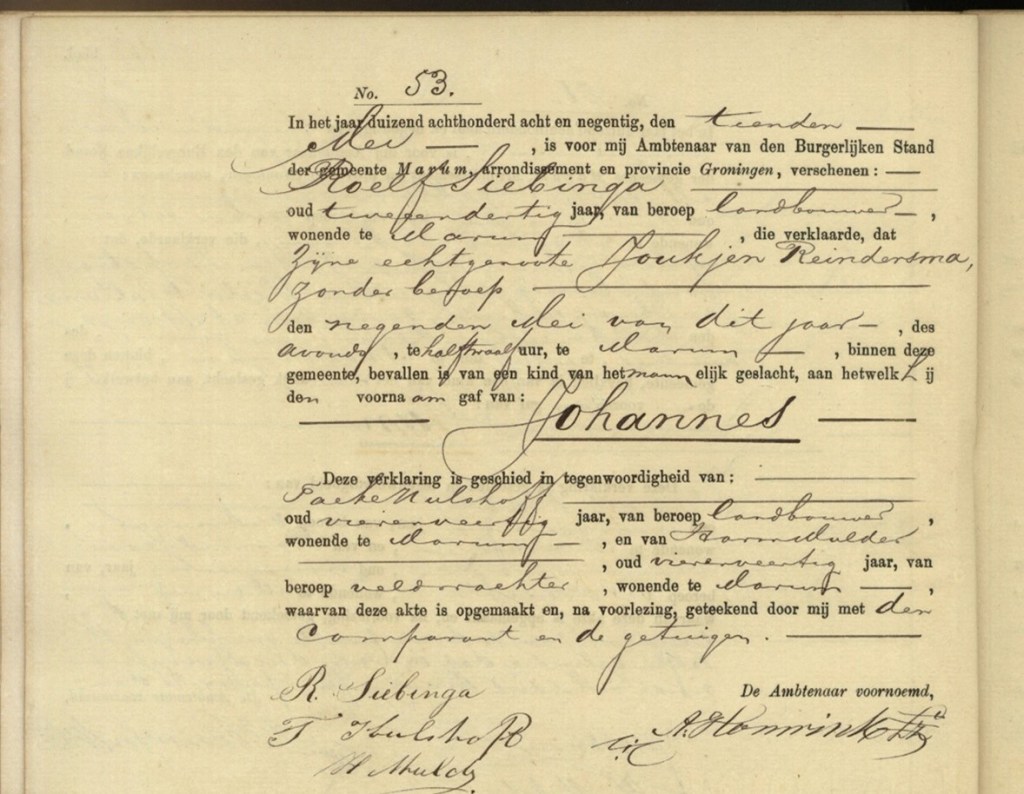 No. 53.
In het jaar duizend achthonderd acht en negentig, den tienden
Mei , is voor mij Ambtenaar van den Burgerlijken Stand
der gemeente Marum, arrondissement en provincie Groningen, verschenen:
Roelf Siebinga
oud tweeendertig jaar, van beroep landbouwer ,
wonende te Marum , die verklaarde, dat
zijne echtgenoote Joukjen Reindersma,
zonder beroep
den negenden Mei van dit jaar , des
avonds , te half twaalf uur, te Marum , binnen deze
gemeente, bevallen is van een kind van het mannelijk geslacht, aan hetwelk hij
den voornaam gaf van:
Johannes
Deze verklaring is geschied in tegenwoordigheid van:
Hulshoff
oud vierenveertig jaar, van beroep landbouwer ,
wonende te Marum , en van Harm Mulder
, oud vierenveertig jaar, van
beroep veldwachter , wonende te Marum ,
waarvan deze akte is opgemaakt en, na voorlezing, geteekend door mij met den
comparant en de getuigen.
R. Siebinga
De Ambtenaar voornoemd,
T Hulshoff
H Mulder